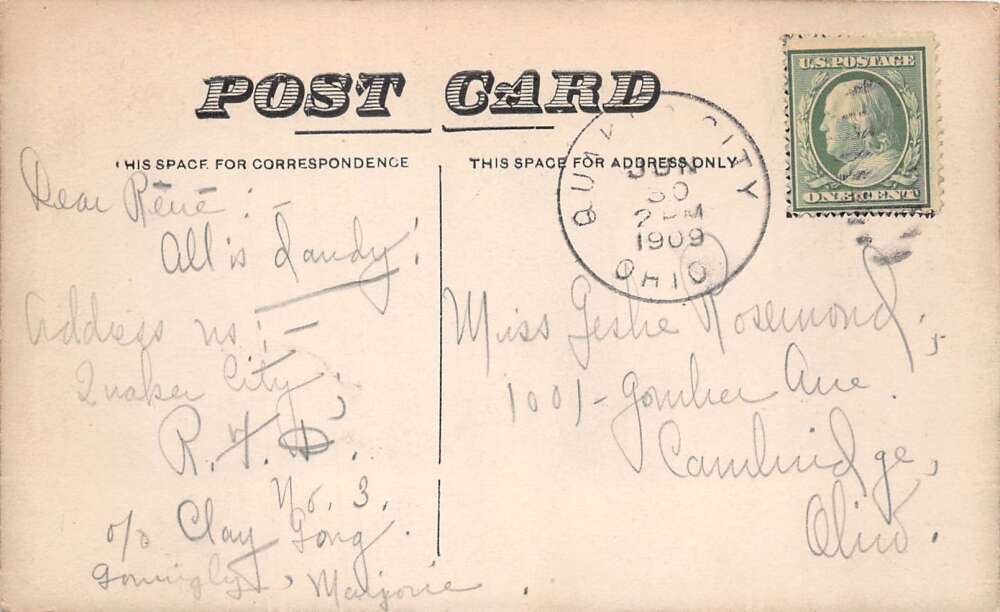 POST CARD
THIS SPACE FOR CORRESPONDENCE
THIS SPACE FOR ADDRESS ONLY
U.S. POSTAGE
ONE CENT
QUAKER CITY
JUN
30
2 PM
1909
OHIO
Dear Rene:—
All is dandy!
Address us:—
Quaker City,
R.F.D.
No. 3.
c/o Clay
Marjorie
Miss Rosemond,
1001- Gomber Ave.
Cambridge,
Ohio.